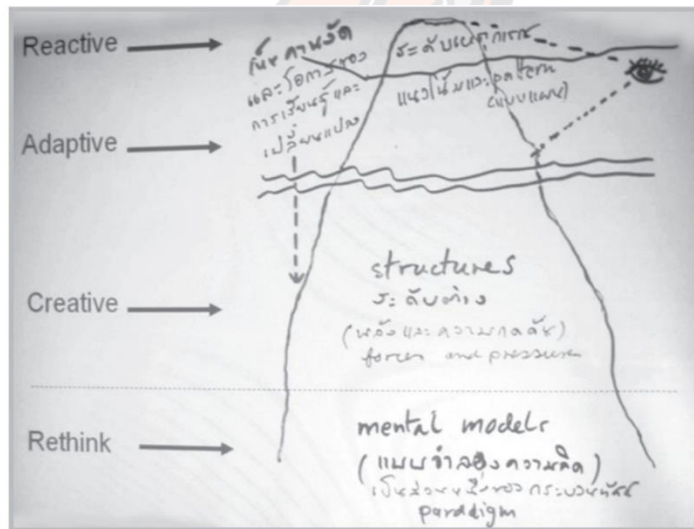 Reactive
Adaptive
Creative
Rethink
และโอกาสของ
การเรียนรู้และ
เปลี่ยนแปลง
ระดับเหตุการณ์
แนวโน้มและ pattern
(แบบแผน)
structures
ระดับต่าง
(พลังและความกดดัน)
forces and pressure
mental models
(แบบจำลองความคิด)
เป็นส่วนหนึ่งของกระบวนทัศน์
paradigm